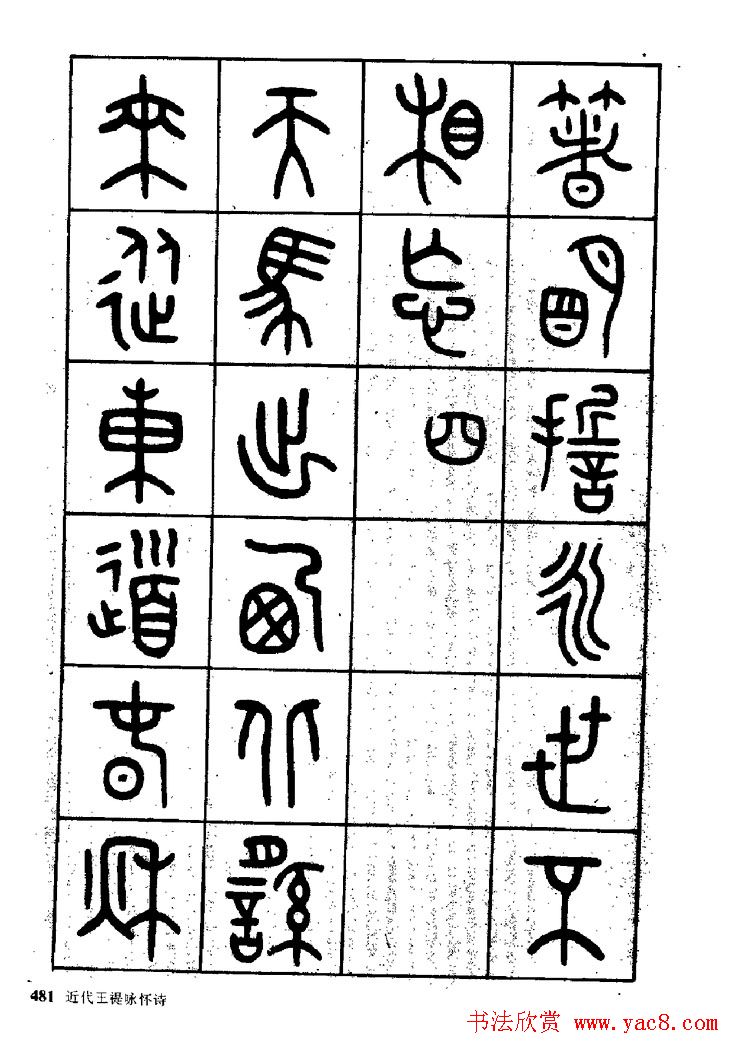 著明誓永世不
相忘 四
天馬出西北繇
來從東道春秋
481 近代王禔咏怀诗
书法欣赏 www.yac8.com